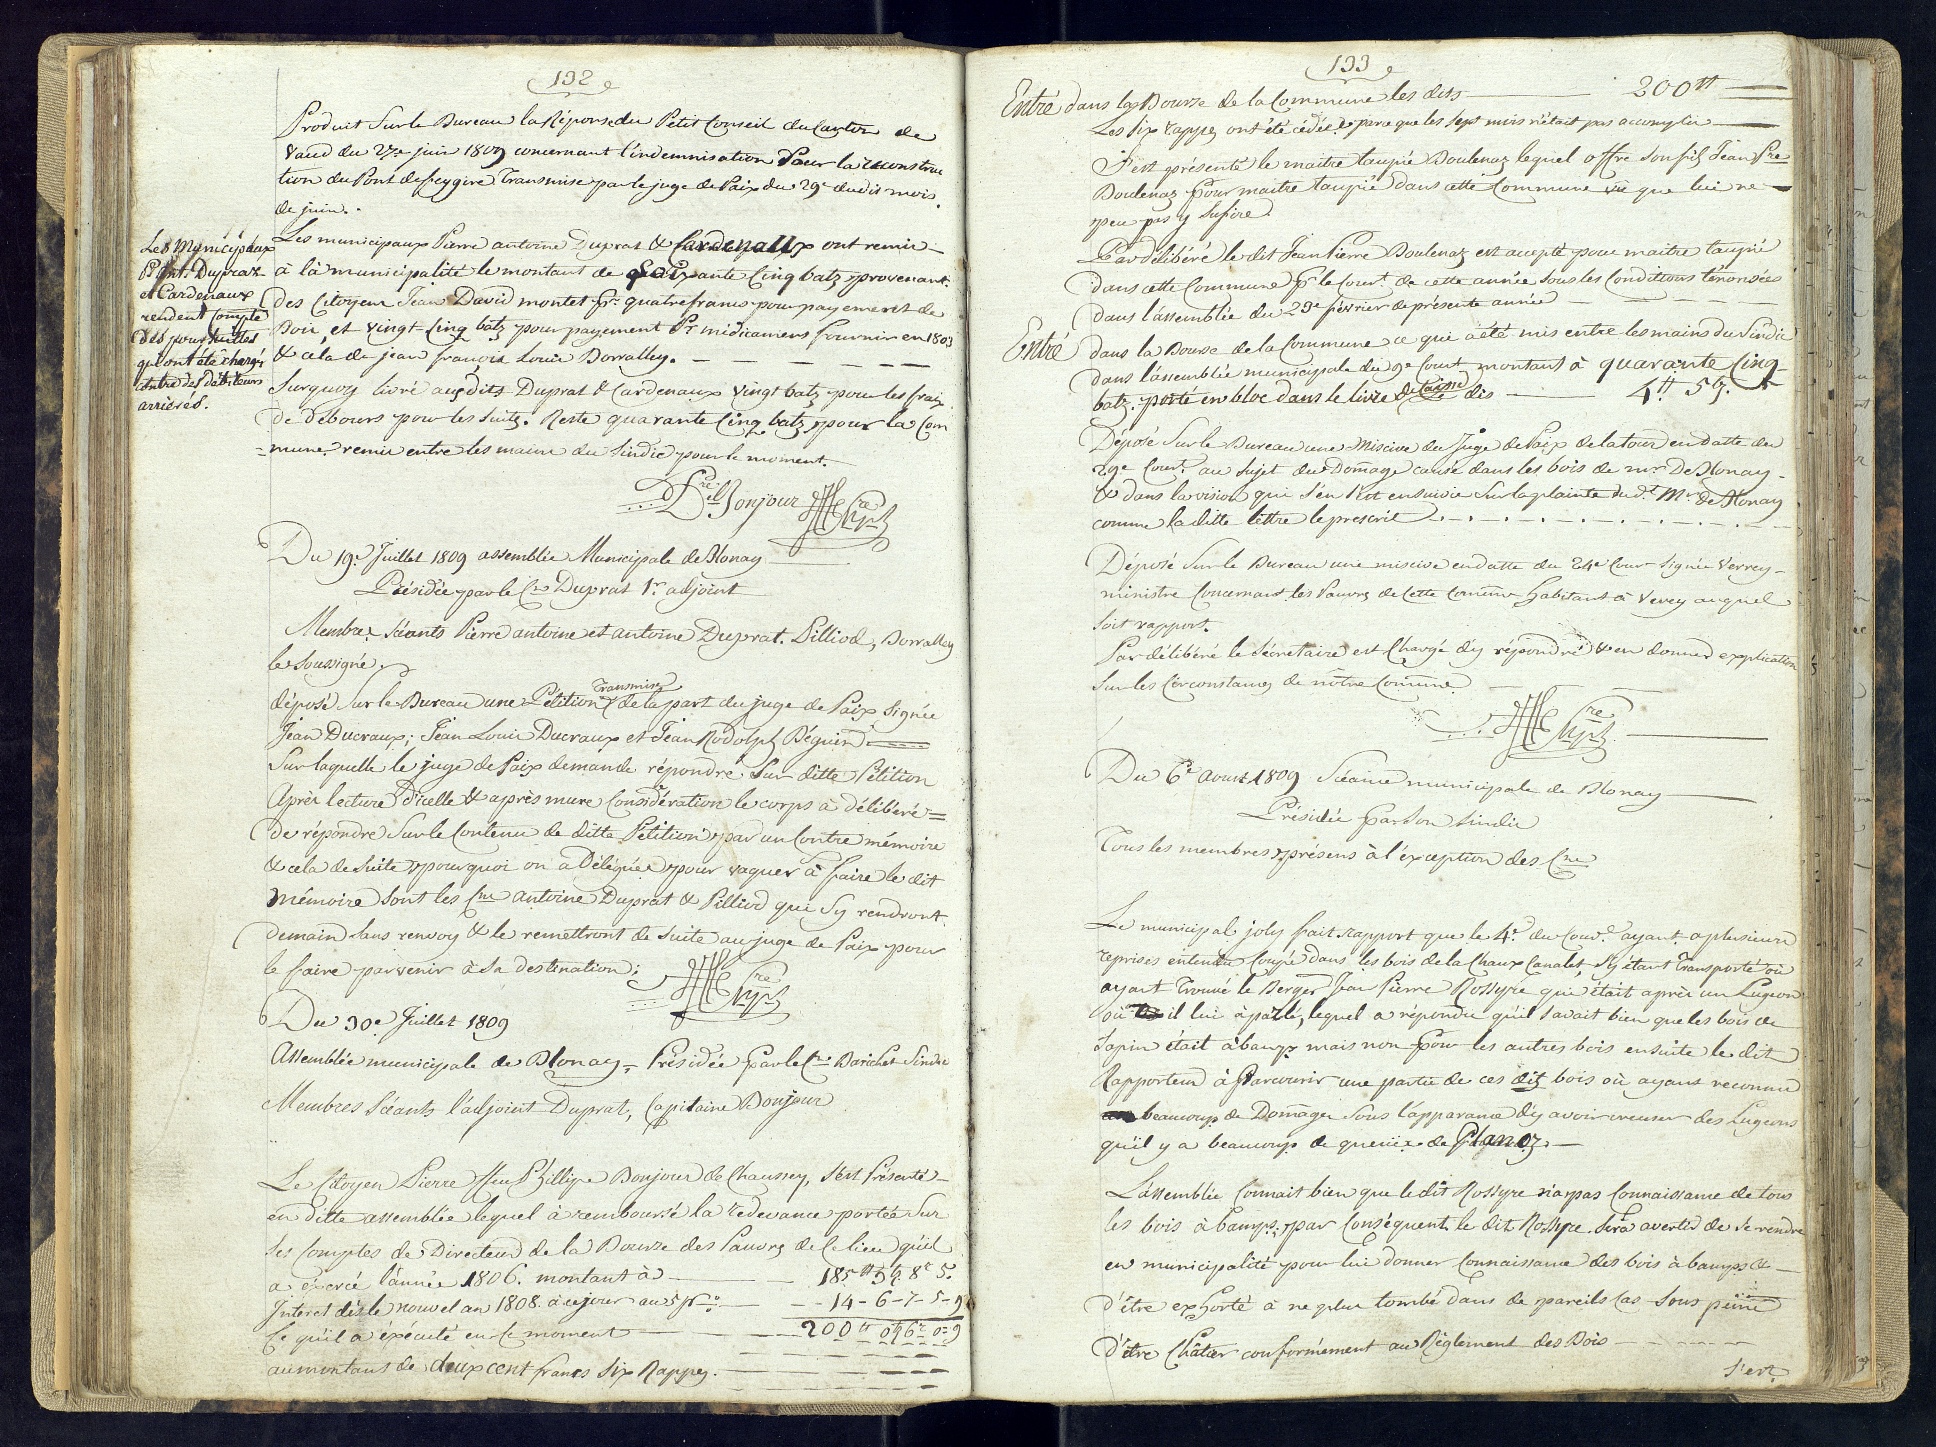 132
Produit Sur le Bureau la Réponse du Petit Conseil du Canton de
Vaud du 27e juin 1809 concernant l'indemnisation Pour la reconstruc
tion du Pont de feygire Transmise par le juge de Paix du 29e dudit mois
de juin.
Les Municipaux
Pre Ant. Duprat
et Cardenaux
rendent Compte
des poursuittes
qu'ont été chargés
contre des débiteurs
arriérés.
Les municipaux Pierre antoine Duprat & Cardenaux ont remis
à la municipalité le montant de soixante Cinq batz provenant
des Citoyens Jean David montet pr quatre francs pour payement de
Bois, et vingt Cinq batz pour payement Pr médicamens fournis en 1803
& cela de jean françois Louis Borralley.
Surquoy livré aux dits Duprat & Cardenaux vingt batz pour les frais
de débours pour les suits. Reste quarante Cinq batz pour la Com
=mune, remis entre les mains du Sindic pour le moment.
Bonjour
Du 19e Juillet 1809 assemblée Municipale de Blonay
Présidée par le Cn Duprat 1r adjoint
Membres Séants Pierre antoine et antoine Duprat. Pilliod, Borralley
le Soussigné.
déposé Sur le Bureau une Pétition Transmise de la part du juge de Paix signée
Jean Ducraux; Jean Louis Ducraux et Jean Rodolph Béguin
Sur laquelle le juge de Paix demande répondre Sur ditte Pétition
Après lecture d'icelle & après mure Considération le corps à délibéré=
de répondre Sur le Contenu de ditte Pétition par un Contre mémoire
& cela de Suite pourquoi on a Délégués pour vaquer à faire le dit
Mémoire sont les Cns Antoine Duprat & Pilliod qui Sy rendront
demain Sans renvoy & le remettront de Suite au juge de Paix pour
le faire parvenir à Sa destination;
Du 30e Juillet 1809
Assemblée municipale de Blonay, Présidée par le Cn Barichet Sindic
Membres Séants l'adjoint Duprat, Capitaine Bonjour
Le Citoyen Pierre ffeu Phillipe Bonjour de Chaussey, s'est Présenté
en ditte assemblée lequel à remboursé la redevance portée Sur
Ses Comptes de Directeur de la Bourse des Pauvres de Ce lieu qu'il
a éxercé l'année 1806. montant à — 185 tt 3 b. 8 r 5.
Interet dès le nouvel an 1808 à ce jour au 5 pr o — 14-6-7-5-9
Ce qu'il à éxécuté en Ce moment — 200 tt 0 b 6 r 0-9
au montant de deux cent francs Six Rappes.
133
Entré dans la Bourse de la Commune les dits — 200 tt
Les Six rappes ont été cédées parce que les sept mois n'était pas accomplis
S'est présenté le maitre taupié Boulenaz lequel offre son fils Jean Pre
Boulenaz pour maitre taupié dans cette Commune vu que lui ne
peu pas y Sufire.
Par délibéré le dit Jean Pierre Boulenaz est accepté pour maitre taupié
dans cette Commune Pr le Cour.t de cette année Sous les Conditions ténorisées
dans l'assemblée du 23e février de présente année
Entré dans la Bourse de la Commune ce que a été mis entre les mains du Sindic
dans l'assemblée municipale du 9e Court montant à quarante Cinq
batz. porté en bloc dans le livre de Caisse dis — 4 tt 5 b.
Déposé Sur le Bureau une Miscive du Juge de Paix de la tour en datte du
29e Cour.t au Sujet du Domage causé dans les bois de mr De Blonay
& dans la vision qui S'en est ensuivie Sur la plainte du d.t Mr de Blonay
comme la ditte lettre le prescrit
Déposé Sur le Bureau une miscive en datte du 24e Cour.t signée Verrey
ministre Concernant les Pauvres de Cette Comune habitant à Vevey auquel
soit rapport.
Par délibéré le Sécretaire est Chargé d'y répondre & en donner explication
Sur les Circonstances de nôtre Comune
Du 6e aoust 1809 Séance municipale de Blonay
Présidée par Son Sindic
Tous les membres présens à l'éxception des Cns
Le municipal joly fait rapport que le 4e du Cour.t ayant a plusieurs
reprises entendu Coupé dans les bois de la Chaux Canalet, S'y étant Transporté où
ayant Trouvé le Berger Jean Pierre Rossyre qui était après un Lugeon
où il lui à parlé, lequel a répondu qu'il Savait bien que les bois de
Sapin était à bamps mais non pour les autres bois ensuite le dit
Rapporteur à Parcourir une partie de ces dits bois où ayant reconnu
beaucoup de Domages Sous l'apparance d'y avoir creuser des Lugeons
qu'il y a beaucoup de queuües de Planoz
L'assemblée Connait bien que le dit Rossyre n'a pas Connaissance de tous
les bois à bamps; par Conséquent le dit Rossyre Sera averti de Se rendre
en municipalité pour lui donner Connaissance des bois à bamps &
d'être exhorté à ne plus tombé dans de pareils Cas Sous peine
d'être Châtier conformément au Règlement des Bois
s'est